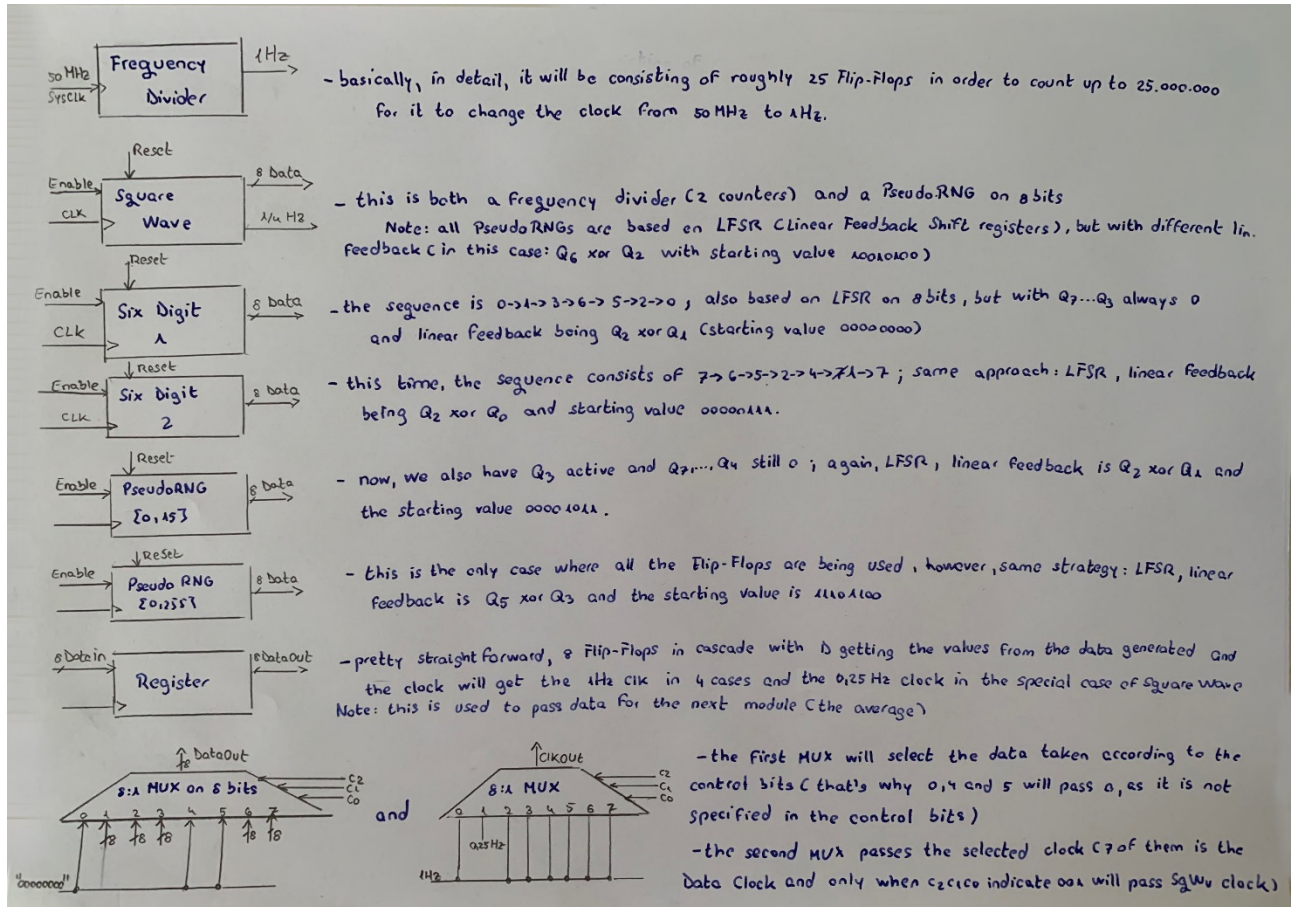 50 MHz
SysClk
Frequency
Divider
1Hz
- basically, in detail, it will be consisting of roughly 25 Flip-Flops in order to count up to 25.000.000
for it to change the clock from 50 MHz to 1Hz.
Reset
Enable
CLK
Square
Wave
8 Data
1/4 Hz
- this is both a frequency divider (2 counters) and a PseudoRNG on 8 bits
Note: all PseudoRNGs are based on LFSR (Linear Feedback Shift registers), but with different lin.
feedback (in this case: Q6 xor Q2 with starting value 10010100)
Reset
Enable
CLK
Six Digit
1
8 Data
- the sequence is 0->1->3->6->5->2->0 ; also based on LFSR on 8 bits, but with Q7...Q3 always 0
and linear feedback being Q2 xor Q1 (starting value 00000000)
Reset
Enable
CLK
Six Digit
2
8 Data
- this time, the sequence consists of 7->6->5->2->4->1->7 ; same approach: LFSR, linear feedback
being Q2 xor Q0 and starting value 00000111.
Reset
Enable
PseudoRNG
[0,15]
8 Data
- now, we also have Q3 active and Q7,...,Q4 still 0 ; again, LFSR, linear feedback is Q2 xor Q1 and
the starting value 00001011.
Reset
Enable
Pseudo RNG
[0,255]
8 Data
- this is the only case where all the Flip-Flops are being used, however, same strategy: LFSR, linear
feedback is Q5 xor Q3 and the starting value is 11101100
8 Datain
Register
8 DataOut
- pretty straight forward, 8 Flip-Flops in cascade with D getting the values from the data generated and
the clock will get the 1Hz clk in 4 cases and the 0,25 Hz clock in the special case of Square Wave
Note: this is used to pass data for the next module (the average)
8 DataOut
8:1 MUX on 8 bits
C2
C1
C0
0 1 2 3 4 5 6 7
8 8 8 8 8
"00000000"
and
ClkOut
8:1 MUX
C2
C1
C0
0 1 2 3 4 5 6 7
0,25 Hz
1Hz
- the first MUX will select the data taken ccording to the
control bits (that's why 0,4 and 5 will pass 0, as it is not
specified in the control bits)
- the second MUX passes the selected clock (7 of them is the
Data Clock and only when c2c1c0 indicate 001 will pass SqWv clock)